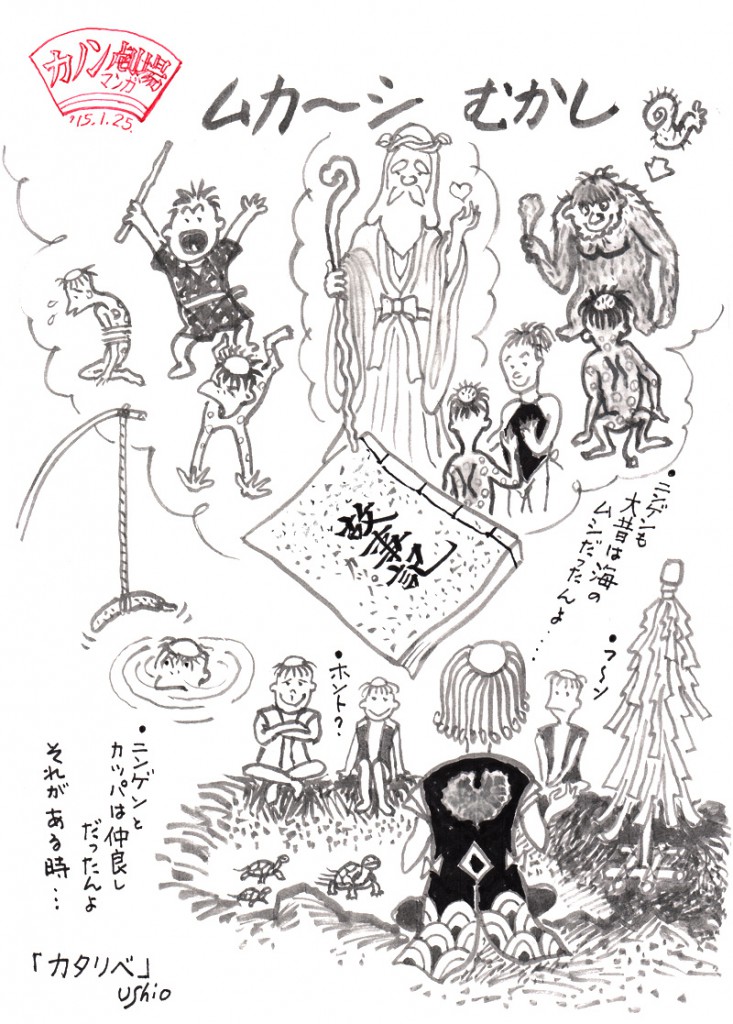 カノン劇場
マンガ
'15.1.25.
ムカ〜シ むかし
故事記
・ニンゲンも
大昔は海の
ムシだったんよ……
・フ〜ン
・ホント?
・ニンゲンと
カッパは仲良し
だったんよ
それが ある時…
「カタリベ」
Ushio